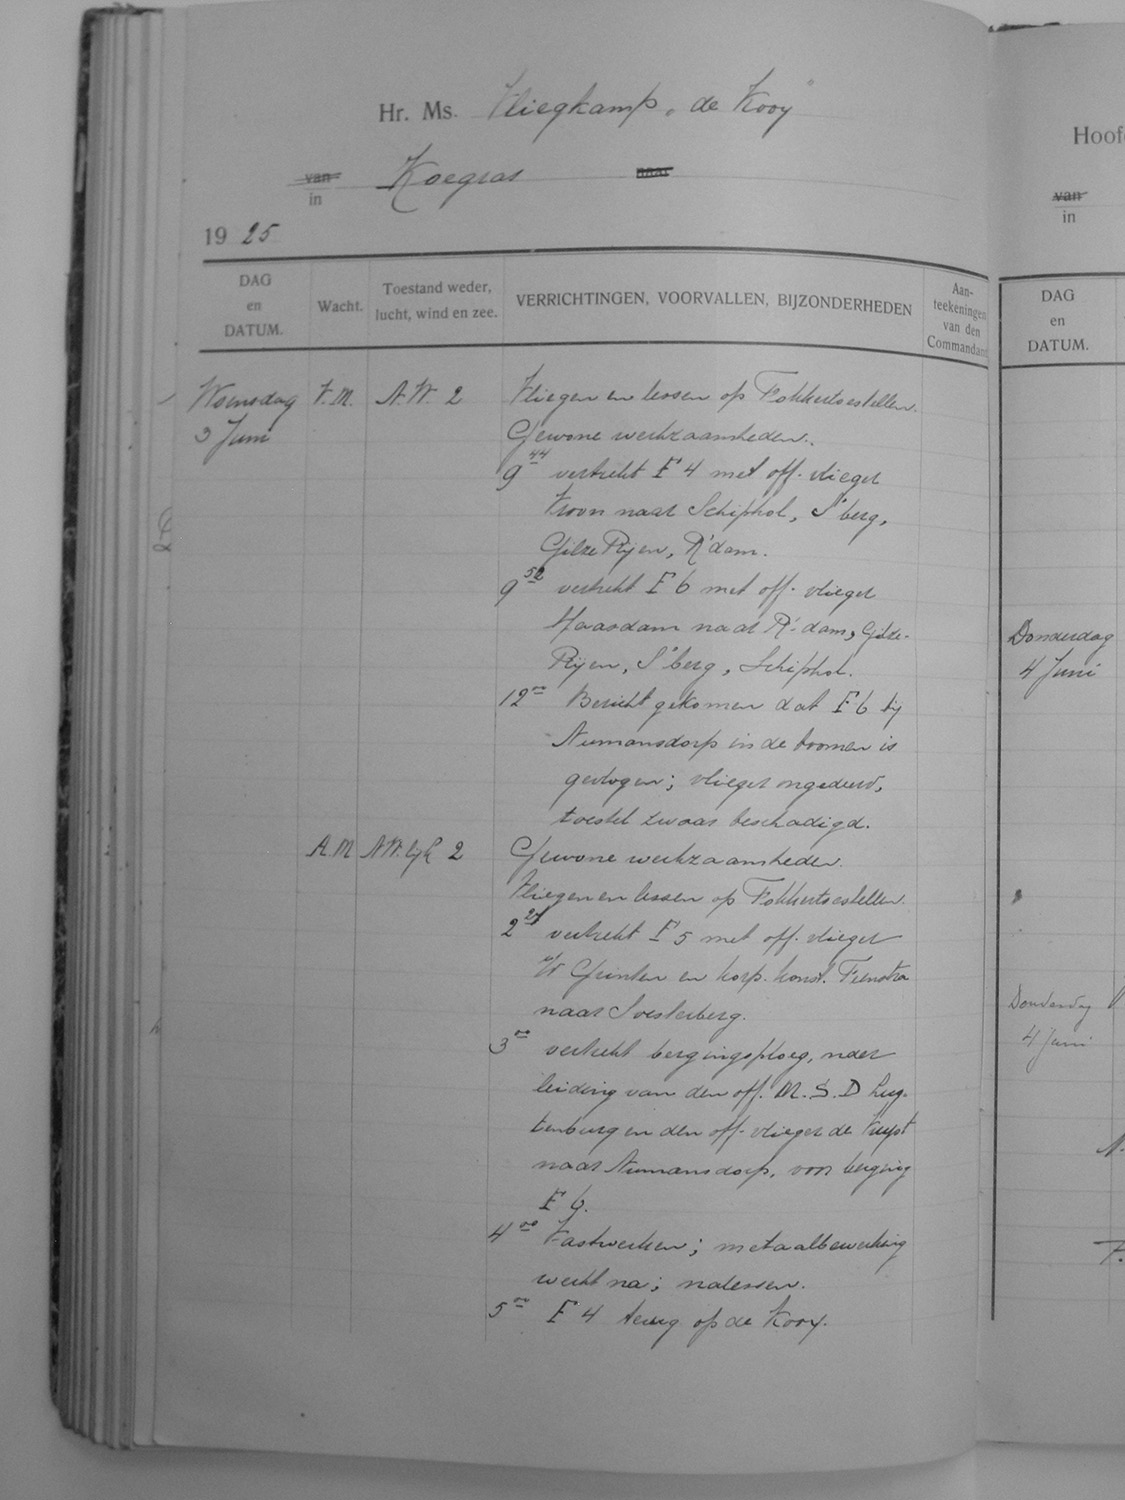 Hr. Ms. Vliegkamp „de Kooy"
van
in
Koegras
naar
19 25
DAG
en
DATUM.
Wacht.
Toestand weder,
lucht, wind en zee.
VERRICHTINGEN, VOORVALLEN, BIJZONDERHEDEN
Aan-
teekeningen
van den
Commandant
Woensdag V.M. N.W. 2 Vliegen en lessen op Fokkertoestellen.
3 Juni Gewone werkzaamheden.
9 44 vertrekt F 4 met off. vlieger
Kroon naar Schiphol, S'berg,
Gilze Rijen, R'dam.
9 52 vertrekt F 6 met off. vlieger
Maasdam naar R'dam, Gilze-
Rijen, S'berg, Schiphol.
12 00 Bericht gekomen dat F 6 bij
Numansdorp in de boomen is
gevlogen; vlieger ongedeerd,
toestel zwaar beschadigd.
A.M N.W. 2 Gewone werkzaamheden.
Vliegen en lessen op Fokkertoestellen.
2 27 vertrekt F 5 met off. vlieger
V Ginten en korp. konst. Feenstra
naar Soesterberg.
3 00 vertrekt bergingsploeg, onder
leiding van den off. M.S.D Lug-
tenburg en den off. vlieger de
naar Numansdorp, voor berging
F 6.
4 00 Vastwerken; metaalbewerking
werkt na; nalessen.
5 00 F 4 terug op de Kooy.
Hoof
van
in
DAG
en
DATUM.
Donderdag
4 Juni
Donderdag
4 Juni